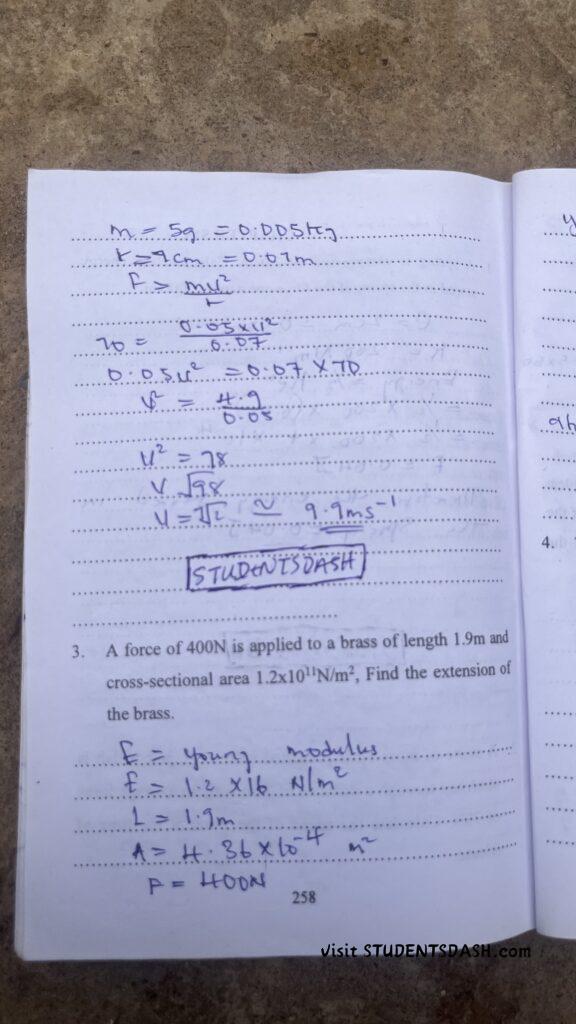 m = 5g = 0.005kg
r = 7cm = 0.07m
F = mv²/r
70 = 0.05xv²/0.07
0.05v² = 0.07 x 70
v² = 4.9/0.05
v² = 98
v √98
v = 7√2 ≃ 9.9ms⁻¹
STUDENTSDASH
3. A force of 400N is applied to a brass of length 1.9m and
cross-sectional area 1.2x10¹¹N/m², Find the extension of
the brass.
E = young modulus
E = 1.2 x 10 N/m²
L = 1.9m
A = 4.36 x 10⁻⁴ m²
F = 400N
258
4.
visit STUDENTSDASH.com